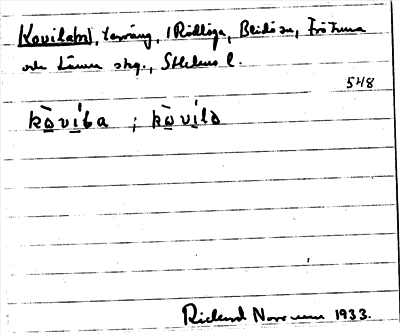 Kovilabo, Lerväng, Rödlöga, Blidö sn, Frötuna
och Länna skg., Sthlms l.
548
kòviba ; kòvilə
Richard Norrman 1933.